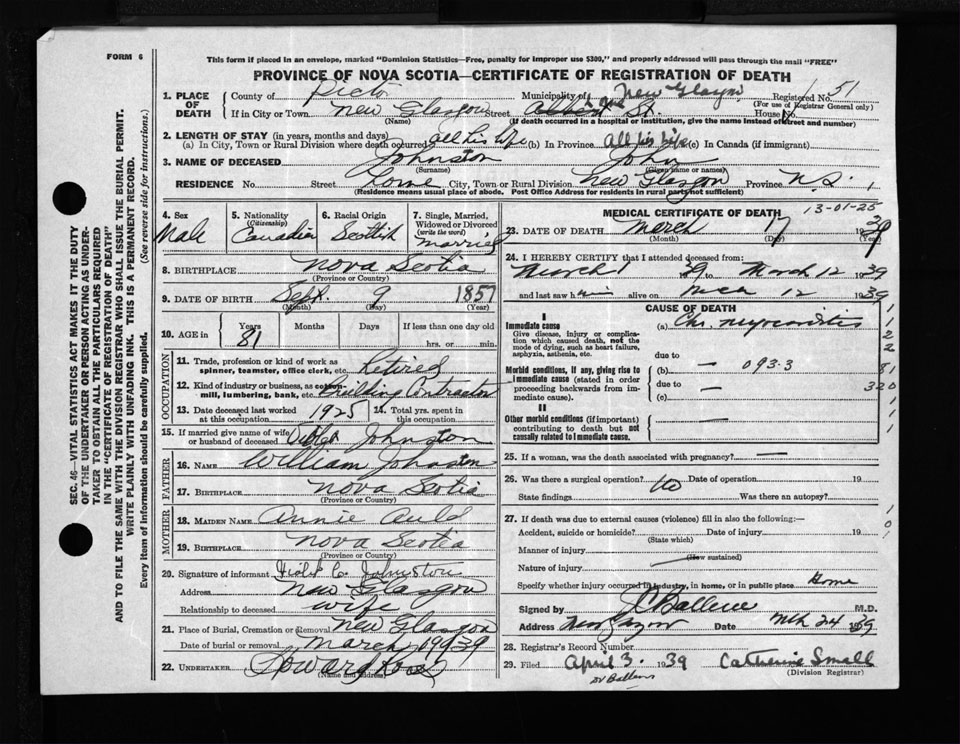 FORM 6
This form if placed in an envelope, marked "Dominion Statistics—Free, penalty for improper use $300," and properly addressed will pass through the mail "FREE"
PROVINCE OF NOVA SCOTIA—CERTIFICATE OF REGISTRATION OF DEATH
1. PLACE OF DEATH County of Pictou Municipality of New Glasgow Registered No. 51
(For use of Registrar General only)
If in City or Town New Glasgow Street House No.
(Name) (If death occurred in a hospital or institution, give the name instead of street and number)
2. LENGTH OF STAY (in years, months and days)
(a) In City, Town or Rural Division where death occurred all his life (b) In Province All his life (c) In Canada (if immigrant)
3. NAME OF DECEASED Johnston John
(Surname) (Given name or names)
RESIDENCE No. Street Lorne City, Town or Rural Division New Glasgow Province N.S.
(Residence means usual place of abode. Post Office Address for residents in rural parts not sufficient)
4. Sex Male
5. Nationality (Citizenship) Canadian
6. Racial Origin Scottish
7. Single, Married, Widowed or Divorced (write the word) married
8. BIRTHPLACE Nova Scotia
(Province or Country)
9. DATE OF BIRTH Sept. 9 1857
(Month) (Day) (Year)
10. AGE in Years 81 Months Days If less than one day
hrs. or min.
OCCUPATION
11. Trade, profession or kind of work as spinner, teamster, office clerk, etc. Retired
12. Kind of industry or business, as cotton-mill, lumbering, bank, etc. Building Contractor
13. Date deceased last worked at this occupation 1925
14. Total yrs. spent in this occupation
15. If married give name of wife or husband of deceased Johnston
FATHER
16. NAME William Johnston
17. BIRTHPLACE Nova Scotia
(Province or Country)
MOTHER
18. MAIDEN NAME Annie Auld
19. BIRTHPLACE Nova Scotia
(Province or Country)
20. Signature of informant Violet C. Johnston
Address New Glasgow
Relationship to deceased wife
21. Place of Burial, Cremation or Removal New Glasgow
Date of burial or removal March 19 1939
22. UNDERTAKER
(Name and address)
MEDICAL CERTIFICATE OF DEATH
13-01-25
23. DATE OF DEATH March 17 1939
(Month) (Day) (Year)
24. I HEREBY CERTIFY that I attended deceased from
March 1 39 to March 12 1939
and last saw him alive on 12 1939
CAUSE OF DEATH
I
Immediate cause (a) Chr. myocarditis
Give disease, injury or complication which caused death, not the mode of dying, such as heart failure, asphyxia, asthenia, etc.
due to
Morbid conditions, if any, giving rise to immediate cause (stated in order proceeding backwards from immediate cause). (b) — 093.3
due to —
(c)
II
Other morbid conditions (if important) contributing to death but not causally related to immediate cause. —
25. If a woman, was the death associated with pregnancy? —
26. Was there a surgical operation? No Date of operation 19
State findings Was there an autopsy?
27. If death was due to external causes (violence) fill in also the following:—
Accident, suicide or homicide? Date of injury 19
(State which)
Manner of injury
(How sustained)
Nature of injury
Specify whether injury occurred in industry, in home, or in public place Home
Signed by M.D.
Address Date Mch 24 39
28. Registrar's Record Number
29. Filed April 3. 1939 Catherine Small
(Division Registrar)
SEC. 46—VITAL STATISTICS ACT MAKES IT THE DUTY
OF THE UNDERTAKER OR PERSON ACTING AS UNDER-
TAKER TO OBTAIN ALL THE PARTICULARS REQUIRED
IN THE "CERTIFICATE OF REGISTRATION OF DEATH"
AND TO FILE THE SAME WITH THE DIVISION REGISTRAR WHO SHALL ISSUE THE BURIAL PERMIT.
WRITE PLAINLY WITH UNFADING INK. THIS IS A PERMANENT RECORD.
Every item of information should be carefully supplied. (See reverse side for instructions.)